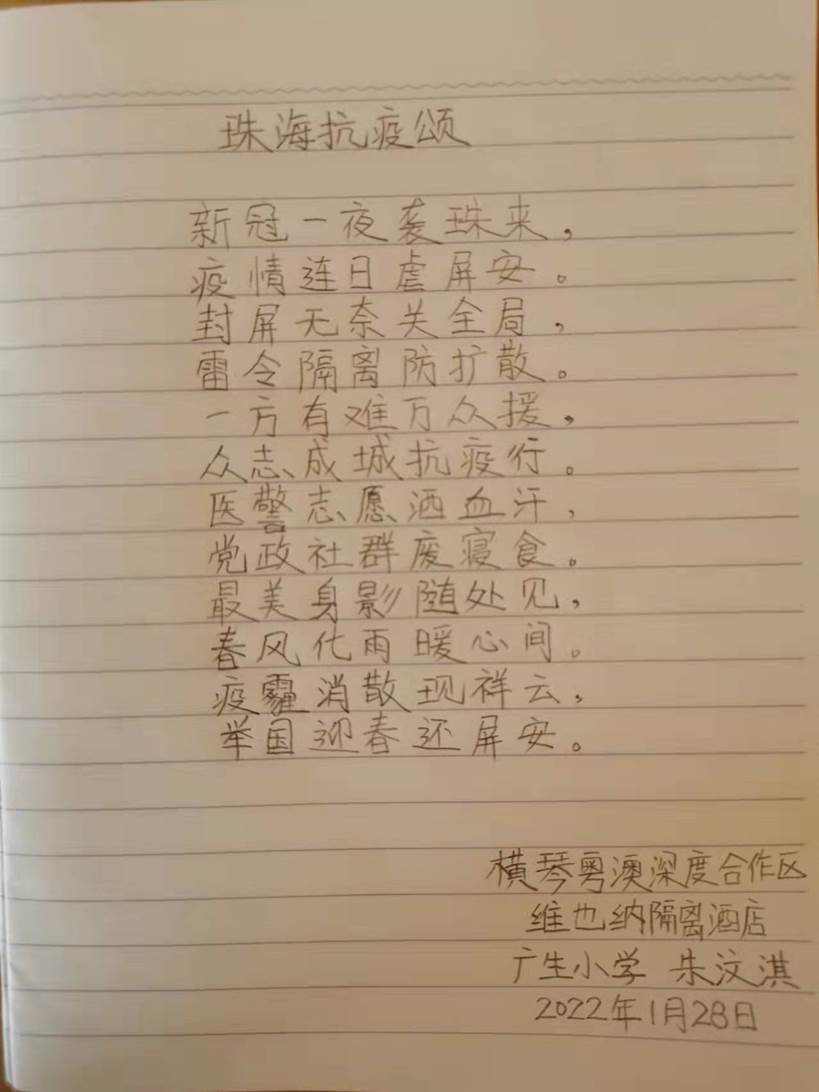 珠海抗疫颂
新冠一夜袭珠来，
疫情连日虐屏安。
封屏无奈关全局，
雷令隔离防扩散。
一方有难万众援，
众志成城抗疫行。
医警志愿洒血汗，
党政社群废寝食。
最美身影随处见，
春风化雨暖心间。
疫霾消散现祥云，
举国迎春还屏安。
横琴粤澳深度合作区
维也纳隔离酒店
广生小学 朱汶淇
2022年1月28日